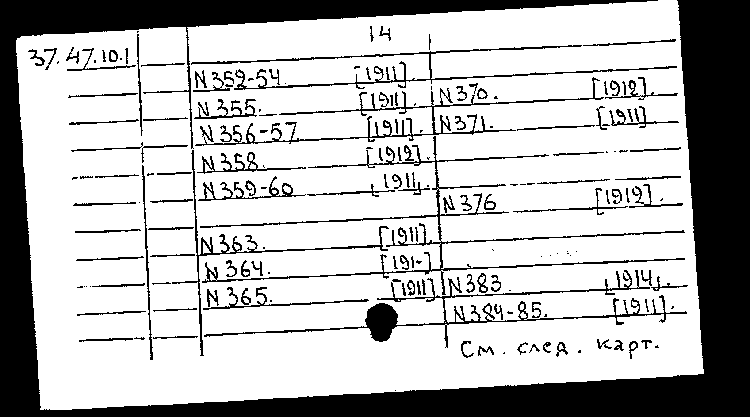 14
37.47.10.1
N 352-54. [1911].
N 355. [1911].
N 356-57. [1911].
N 358. [1912].
N 359-60 [1911].
N 363. [1911].
N 364. [191-]
N 365. [1911]
N 370. [1912].
N 371. [1911].
N 376 [1912].
N 383 [1914].
N 384-85. [1911].
См. след. карт.